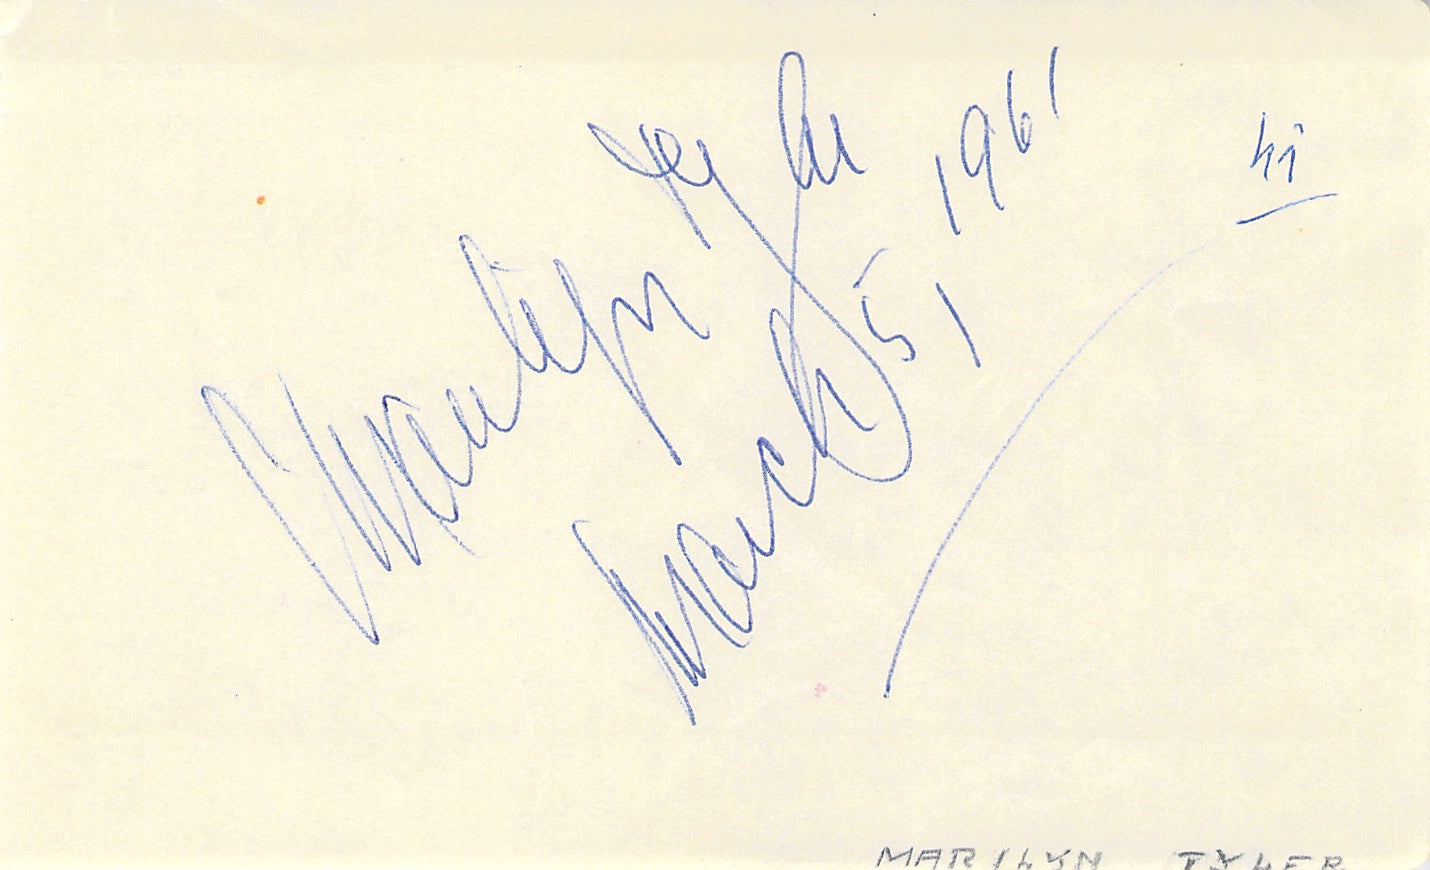 Marilyn Tyler
March 5, 1961
hi
MARILYN TYLER